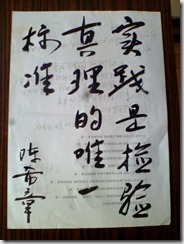 实践是检验
真理的唯一
标准